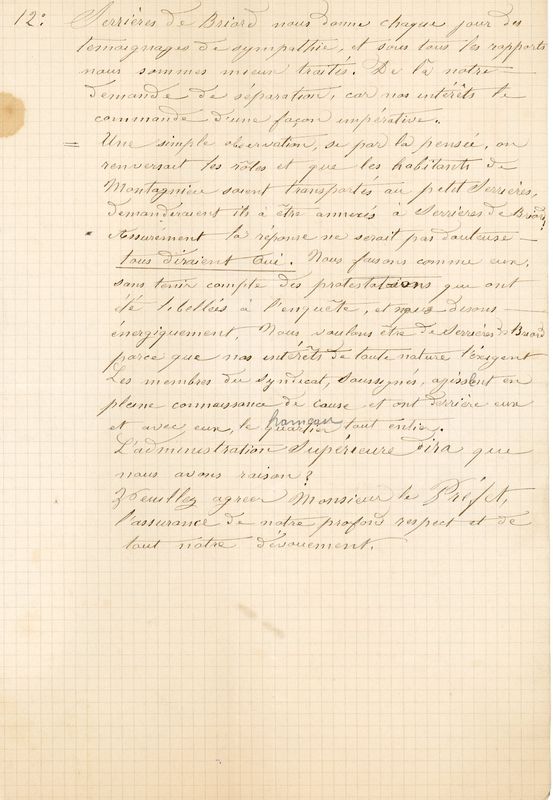 12º Serrières de Briord nous donne chaque jour des
temoignages de sympathie, et sous tous les rapports
nous sommes mieux traités. De là notre
demande de séparation, car nos interêts le
commande d'une façon impérative.
= Une simple observation, se par la pensée, on
renversait les rôles et que les habitants de
Montagnieu soient transportés au petit Serrières,
demanderaient ils à être annexés à Serrières de Briord?
Assurément la réponse ne serait pas douteuse –
tous diraient Oui. Nous faisons comme eux,
sans tenir compte des protestations qui ont
été libellées à l'enquête, et nous disons
énergiquement, Nous voulons être de Serrières de Briord
parce que nos intérêts de toute nature l'exigent
Les membres du Syndicat, soussignés, agissent en
pleine connaissance de cause et ont derrière eux
hameau
et avec eux, le quartier tout entier.
L'administration Supérieure dira que
nous avons raison?
Veuillez agreer Monsieur le Préfet,
l'assurance de notre profond respect et de
tout notre dévouement.